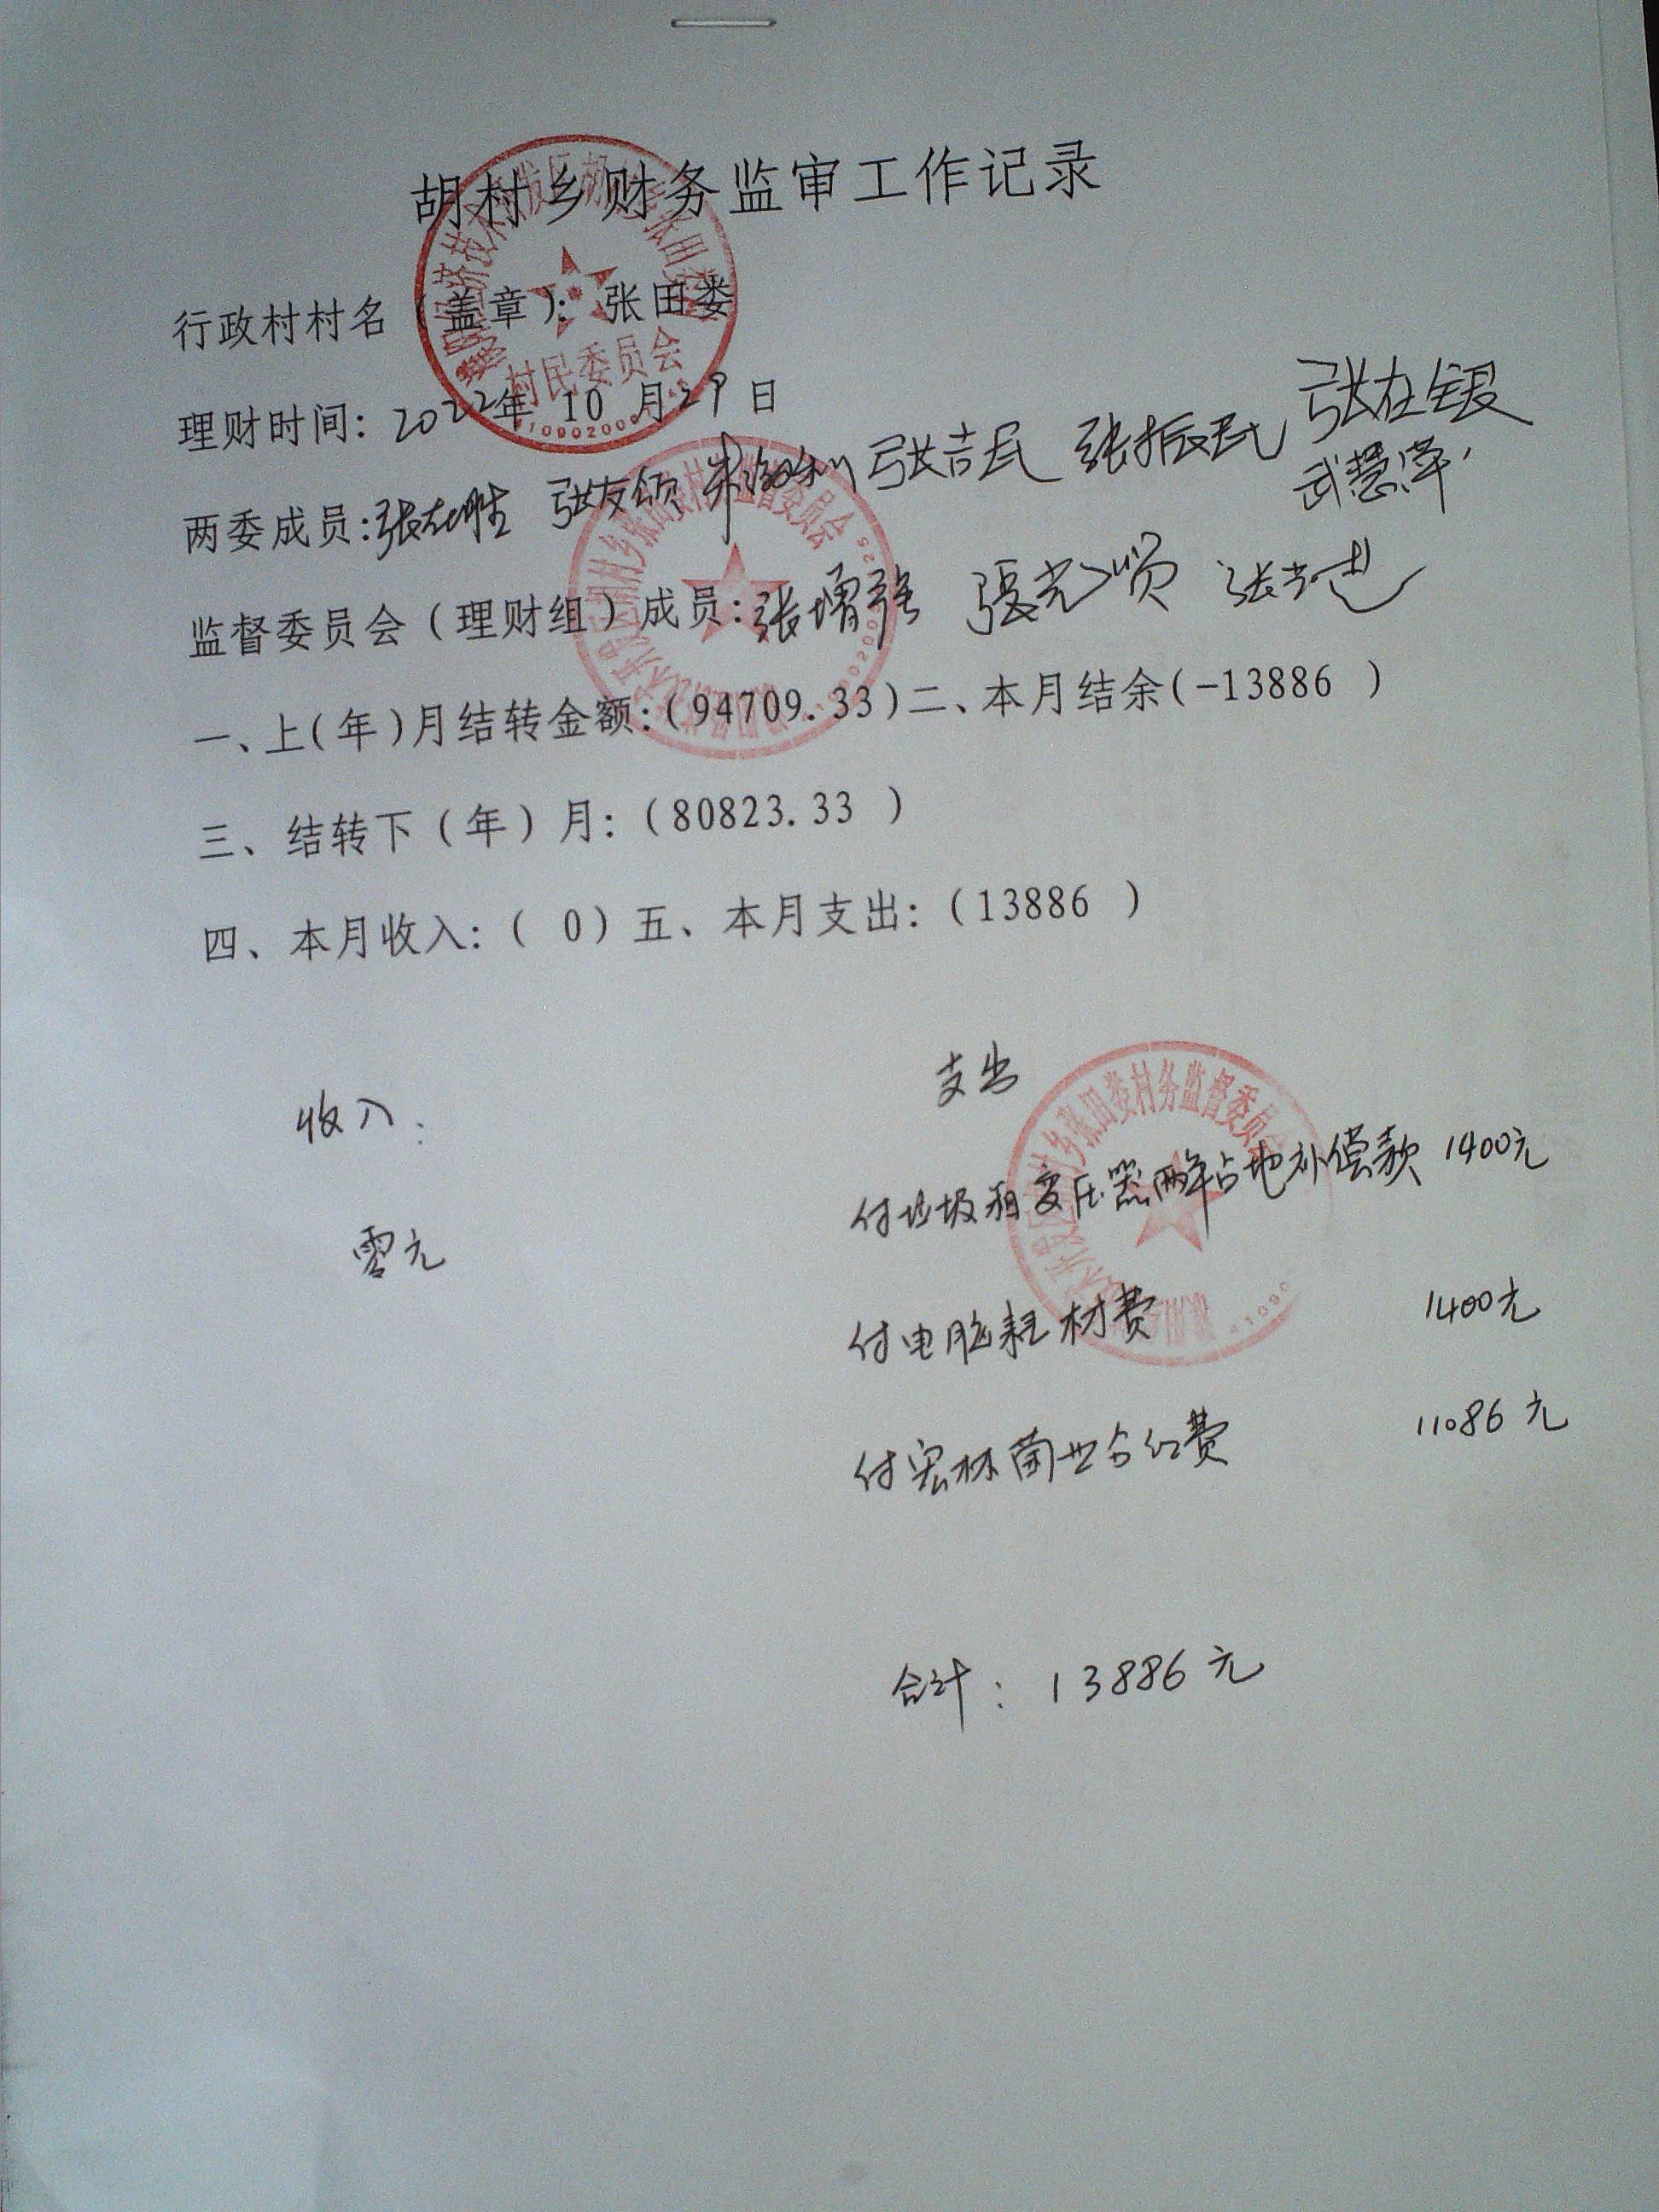 胡村乡财务监审工作记录
行政村村名（盖章）：张田娄
村民委员会
理财时间：2022年 10 月29日
两委成员：张在胜 张友领 张吉民 张振民 张在银
武慧萍
监督委员会（理财组）成员：张增强 張光贤
一、上（年）月结转金额：（94709.33）二、本月结余（-13886 ）
三、结转下（年）月：（80823.33 ）
四、本月收入：（ 0）五、本月支出：（13886 ）
收入： 支出
乡张田娄村务监督委员会
零元 付垃圾和变压器两年占地补偿款 1400元
付电脑耗材费 1400元
付宏林菌业分红费 11086元
合计：13886元